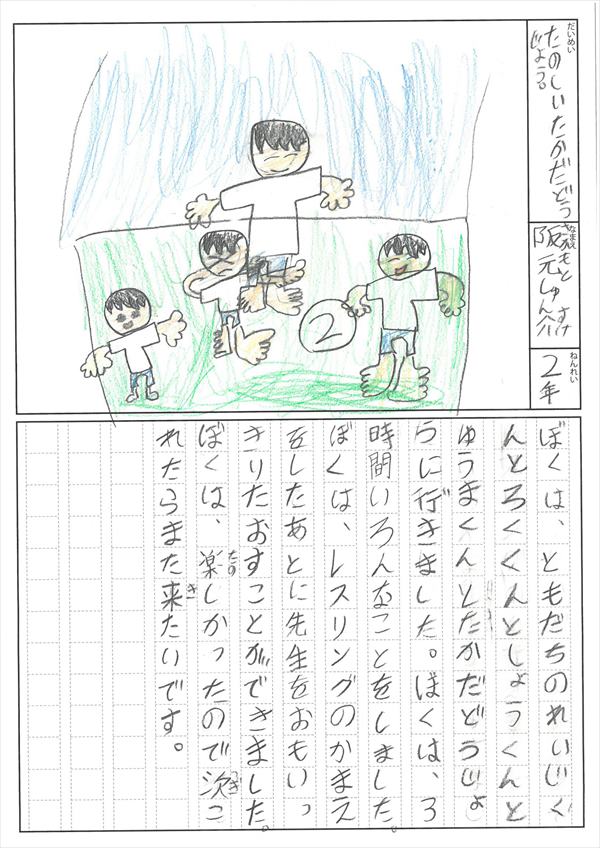 だいめい
たのしいたかだどう
じょう。
なまえ
さかもと すけ
阪元しゅん介
ねんれい
2年
2
ぼくは、ともだちのれいじく
んとろくくんとしょうくんと
ゆうまくんとたかだどうじょ
うに行きました。ぼくは、3
時間いろんなことをしました。
ぼくは、レスリングのかまえ
をしたあとに先生をおもいっ
きりたおすことができました。
たの つぎ
ぼくは、楽しかったので次こ
き
れたらまた来たいです。